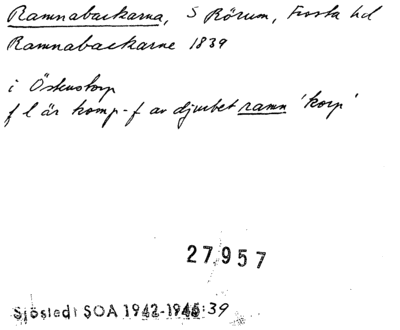 Ramnabackarna, S Rörum, Frosta hd
Ramnabackarne 1839
i Öskustorp
f l är komp-f av djurbet ramn 'korp'
27957
Sjöstedt SOA 1942-1945:39